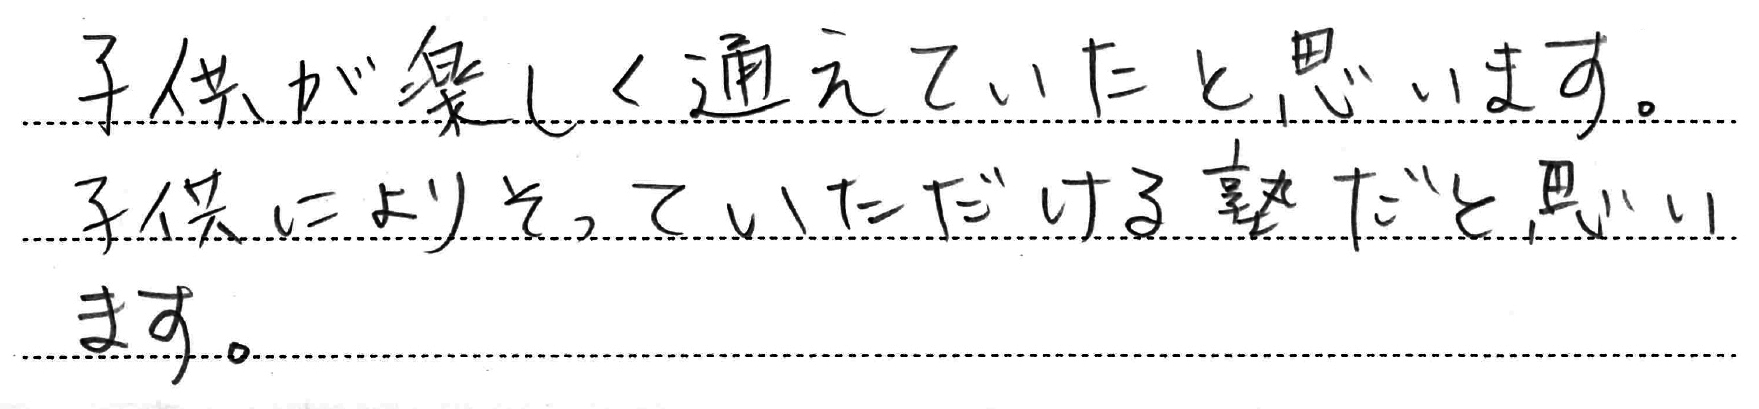 子供が楽しく通えていたと思います。
子供によりそっていただける塾だと思い
ます。